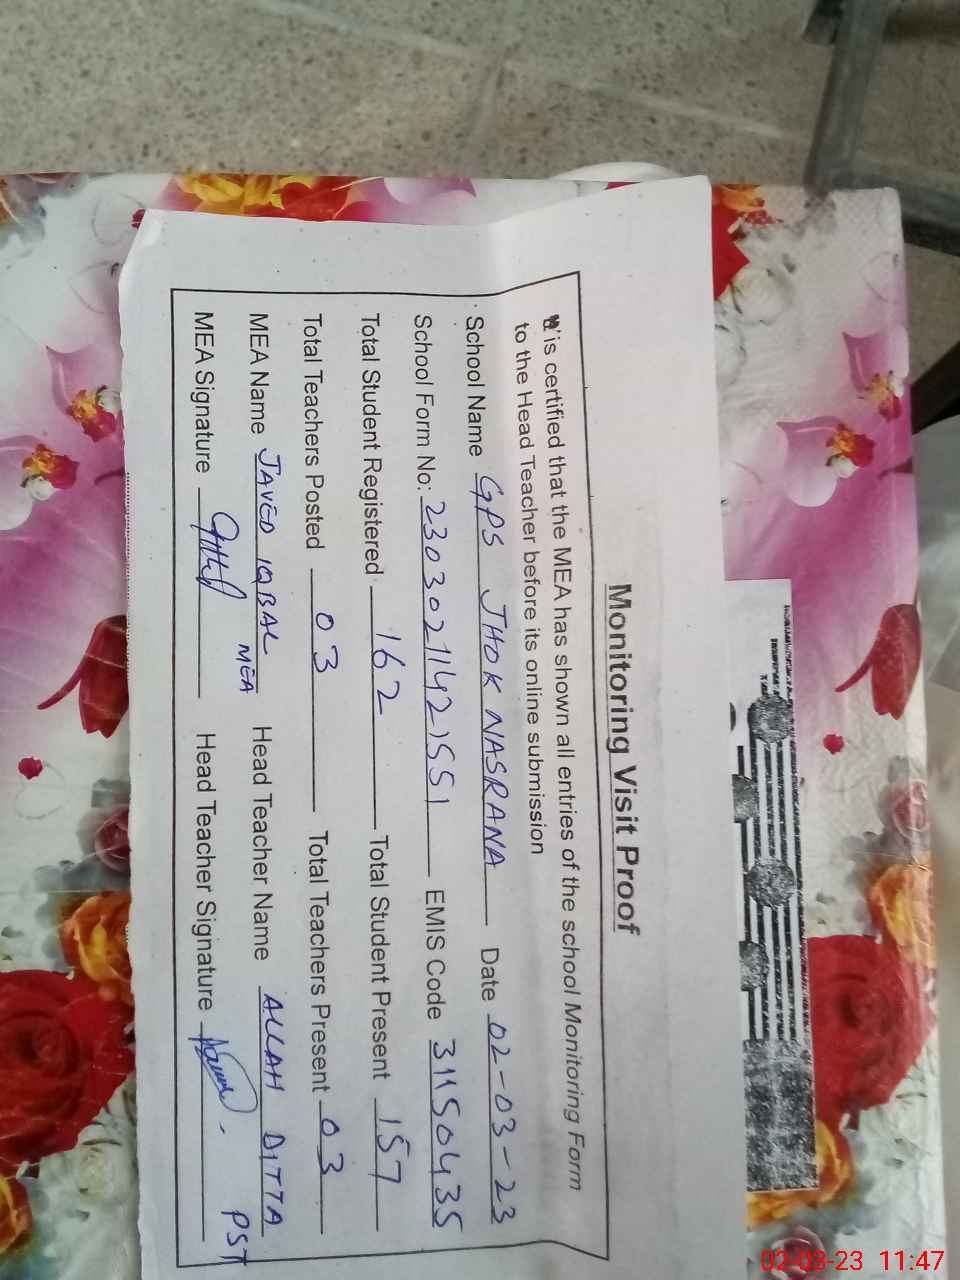 Monitoring Visit Proof
is certified that the MEA has shown all entries of the school Monitoring Form
to the Head Teacher before its online submission
School Name GPS JHOK NASRANA Date 02-03-23
School Form No: 23030211421551 EMIS Code 31150435
Total Student Registered 162 Total Student Present 157
Total Teachers Posted 03 Total Teachers Present 03
MEA Name JAVED IQBAL MEA Head Teacher Name ALLAH DITTA PST
MEA Signature Head Teacher Signature
02-03-23 11:47